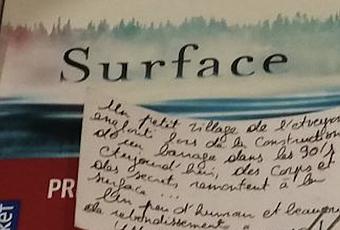 Surface
Un petit village de l'Aveyron
englouti lors de la construction
d'un barrage dans les 90's
Aujourd'hui, des corps et
des secrets remontent à la
surface ...
Un peu d'humour et beaucoup
de rebondissements
PR
ket